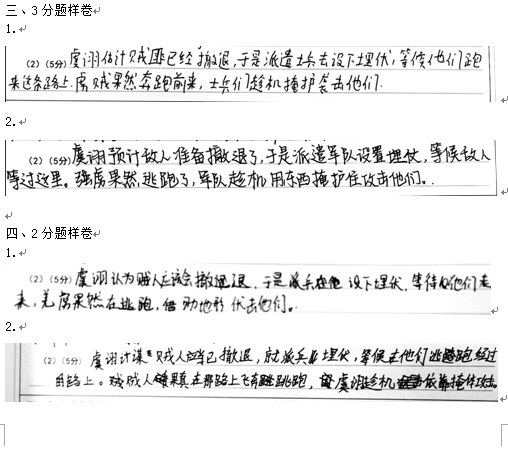 三、3分题样卷
1.
(2)(5分)虞诩估计贼匪已经撤退,于是派遣士兵去设下埋伏,等候他们跑
来这条路上.虏贼果然奔跑前来,士兵们趁机掩护袭击他们.
2.
(2)(5分)虞诩预计敌人准备撤退了,于是派遣军队设置埋伏,等候敌人
等过这里。强虏果然逃跑了,军队趁机用东西掩护住攻击他们。
四、2分题样卷
1.
(2)(5分)虞诩认为贼人应该会撤退,于是派兵 设下埋伏,等待 他们走
来,羌虏果然在逃跑,借助地形伏击他们。
2.
(2)(5分)虞诩计谋 贼人 已撤退,就派兵 埋伏,等候在他们逃跑经过
的路上。贼人果真在那路上飞奔逃跑, 虞诩趁机 依靠掩体攻击